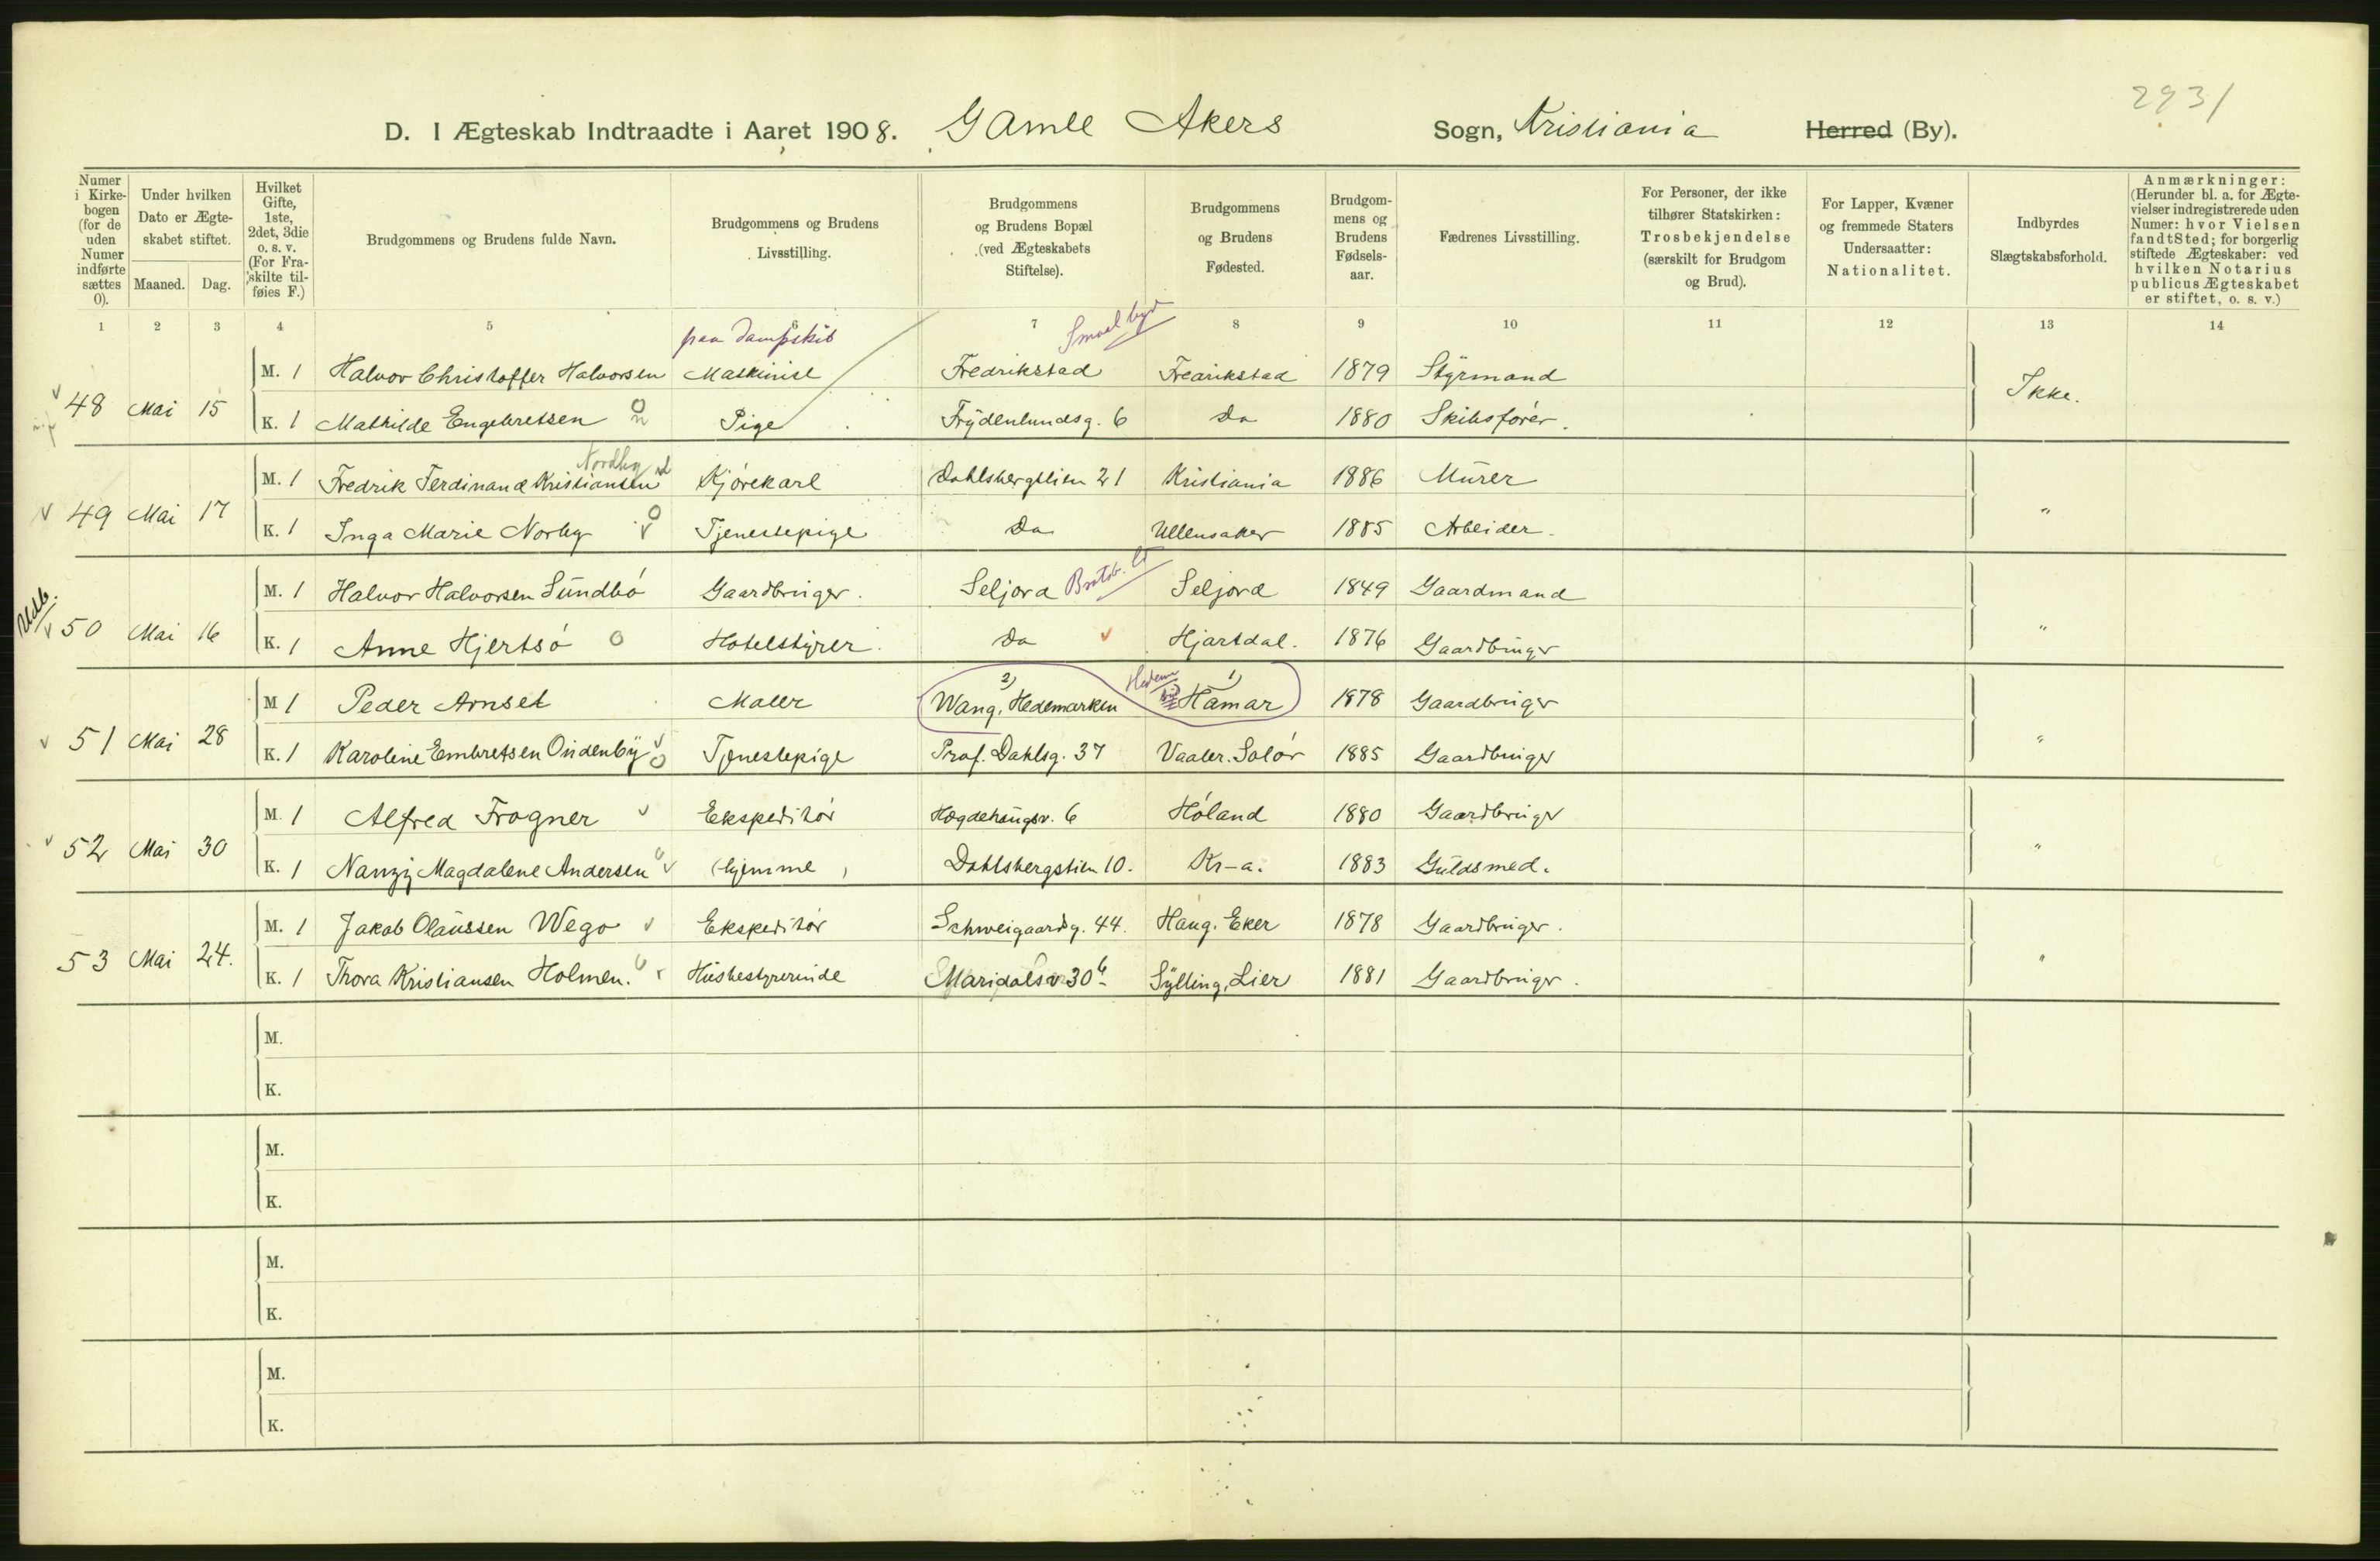 2931
D. I Ægteskab Indtraadte i Aaret 1908. Gamle Akers Sogn, Kristiania Herred (By).
Numer i Kirke-bogen (for de uden Numer indførte sættes 0).
Under hvilken Dato er Ægte-skabet stiftet.
Maaned. Dag.
Hvilket Gifte, 1ste, 2det, 3die o. s. v. (For Fra-skilte til-føies F.)
Brudgommens og Brudens fulde Navn.
Brudgommens og Brudens Livsstilling.
Brudgommens og Brudens Bopæl (ved Ægteskabets Stiftelse).
Brudgommens og Brudens Fødested.
Brudgom-mens og Brudens Fødsels-aar.
Fædrenes Livsstilling.
For Personer, der ikke tilhører Statskirken: Trosbekjendelse (særskilt for Brudgom og Brud).
For Lapper, Kvæner og fremmede Staters Undersaatter: Nationalitet.
Indbyrdes Slægtskabsforhold.
Anmærkninger: (Herunder bl. a. for Ægte-vielser indregistrerede uden Numer: hvor Vielsen fandt Sted; for borgerlig stiftede Ægteskaber: ved hvilken Notarius publicus Ægteskabet er stiftet, o. s. v.)
1 2 3 4 5 6 7 8 9 10 11 12 13 14
paa Dampskib
M. 1 Halvor Christoffer Halvorsen Maskinist Fredrikstad Fredrikstad 1879 Styrmand
48 Mai 15 Ikke.
K. 1 Mathilde Engebretsen Pige Frydenlundsg. 6 Do 1880 Skibsfører.
Nordby
M. 1 Fredrik Ferdinand Kristiansen Kjørekarl Dahlsbergstien 21 Kristiania 1886 Murer
49 Mai 17 "
K. 1 Inga Marie Norby Tjenestepige Do Ullensaker 1885 Arbeider.
M. 1 Halvor Halvorsen Sundbø Gaardbruger. Seljord Bratsb. Seljord 1849 Gaardmand
50 Mai 16 "
K. 1 Anne Hjertsø Hotelstyrer. Do Hjartdal. 1876 Gaardbruger
2) 1)
M 1 Peder Arnset Maler Wang, Hedemarken Hamar 1878 Gaardbruger
51 Mai 28 "
K. 1 Karoline Embretsen Oudenby Tjenestepige Prof. Dahlsg. 37 Vaaler. Solør 1885 Gaardbruger
M. 1 Alfred Frogner Ekspeditør Hægdehaugsv. 6 Høland 1880 Gaardbruger
52 Mai 30 "
K. 1 Nanzy Magdalene Andersen (hjemme) Dahlsbergstien 10. Kr-a. 1883 Guldsmed.
M. 1 Jakob Olaussen Wego Ekspeditør Schweigaardsg. 44. Haug. Eker 1878 Gaardbruger.
53 Mai 24. "
K. 1 Thora Kristiansen Holmen. Husbestyrerinde Maridalsv 30 b Sylling, Lier 1881 Gaardbruger.
M.
K.
M.
K.
M.
K.
M.
K.